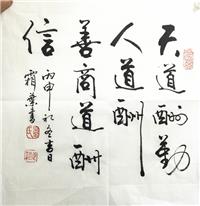 天道酬勤
人道酬
善商道酬
信
丙申初冬吉日
霜葉書